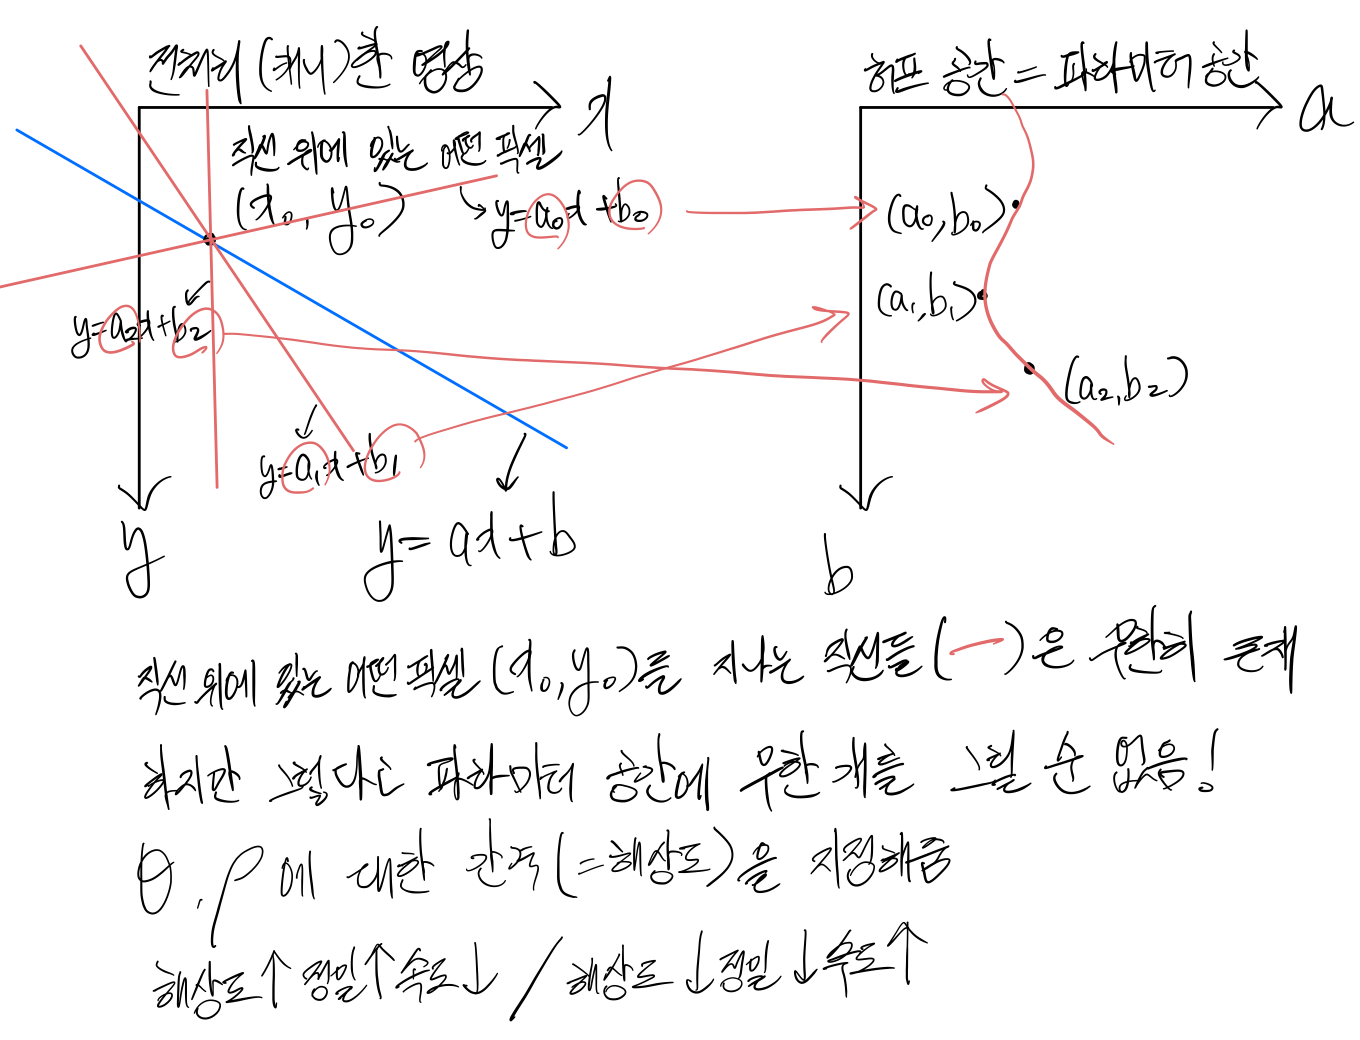 전처리 (캐니)한 영상
x
직선 위에 있는 어떤 픽셀
(x₀, y₀)
y=a₀x+b₀
y=a₂x+b₂
y=a₁x+b₁
y
y=ax+b
허프 공간 = 파라미터 공간
a
(a₀,b₀)
(a₁,b₁)
(a₂,b₂)
b
직선 위에 있는 어떤 픽셀 (x₀,y₀)를 지나는 직선들( )은 무한히 존재
하지만 그렇다고 파라미터 공간에 무한 개를 그릴 순 없음!
θ, ρ에 대한 간격(=해상도)을 지정해줌
해상도↑ 정밀↑ 속도↓ / 해상도↓ 정밀↓ 속도↑